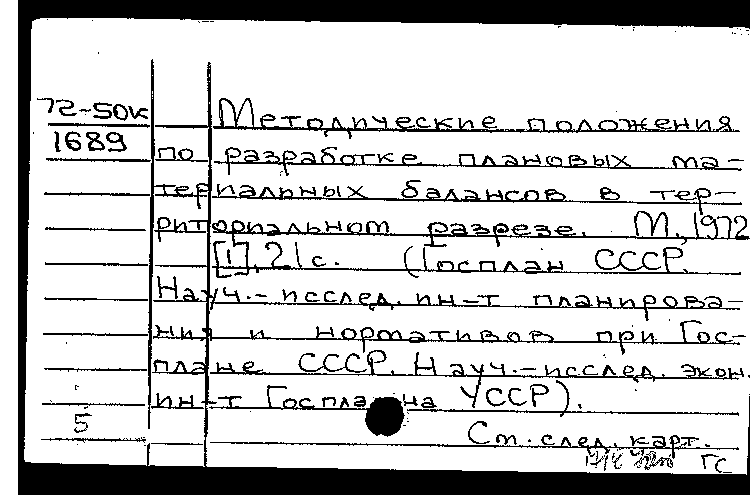 72-50к
1689
Методические положения
по разработке плановых ма-
териальных балансов в тер-
риториальном разрезе. М., 1972
[1], 21с. (Госплан СССР.
Науч.-исслед. ин-т планирова-
ния и нормативов при Гос-
плане СССР. Науч.-исслед. экон.
ин-т Госплана УССР).
5
См. след. карт.
ГС